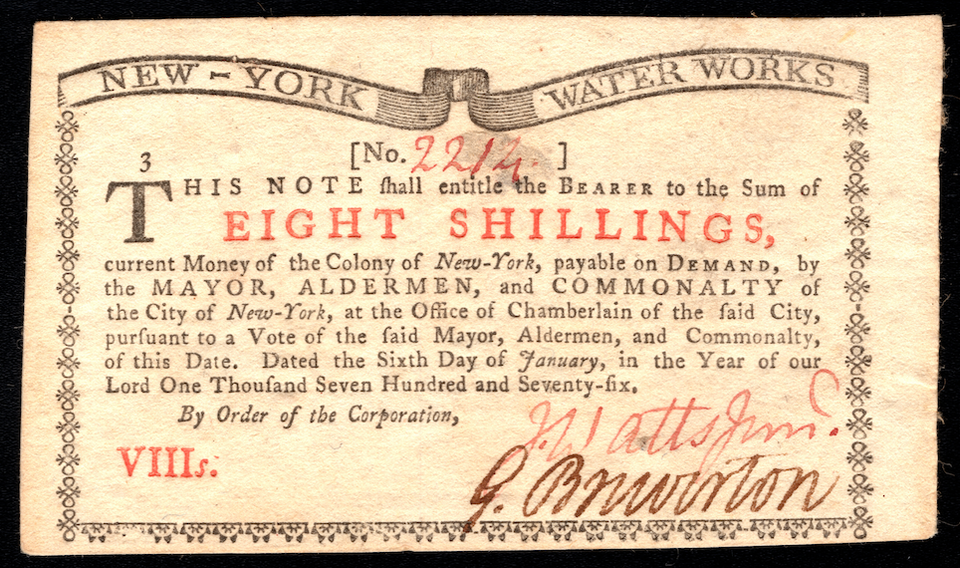 NEW-YORK WATER WORKS
[No. 2214. ]
3
THIS NOTE ſhall entitle the BEARER to the Sum of
EIGHT SHILLINGS,
current Money of the Colony of New-York, payable on DEMAND, by
the MAYOR, ALDERMEN, and COMMONALTY of
the City of New-York, at the Office of Chamberlain of the ſaid City,
purſuant to a Vote of the ſaid Mayor, Aldermen, and Commonalty,
of this Date. Dated the Sixth Day of January, in the Year of our
Lord One Thouſand Seven Hundred and Seventy-ſix.
By Order of the Corporation,
J. Watts Junr.
VIIIs.
G. Brewerton